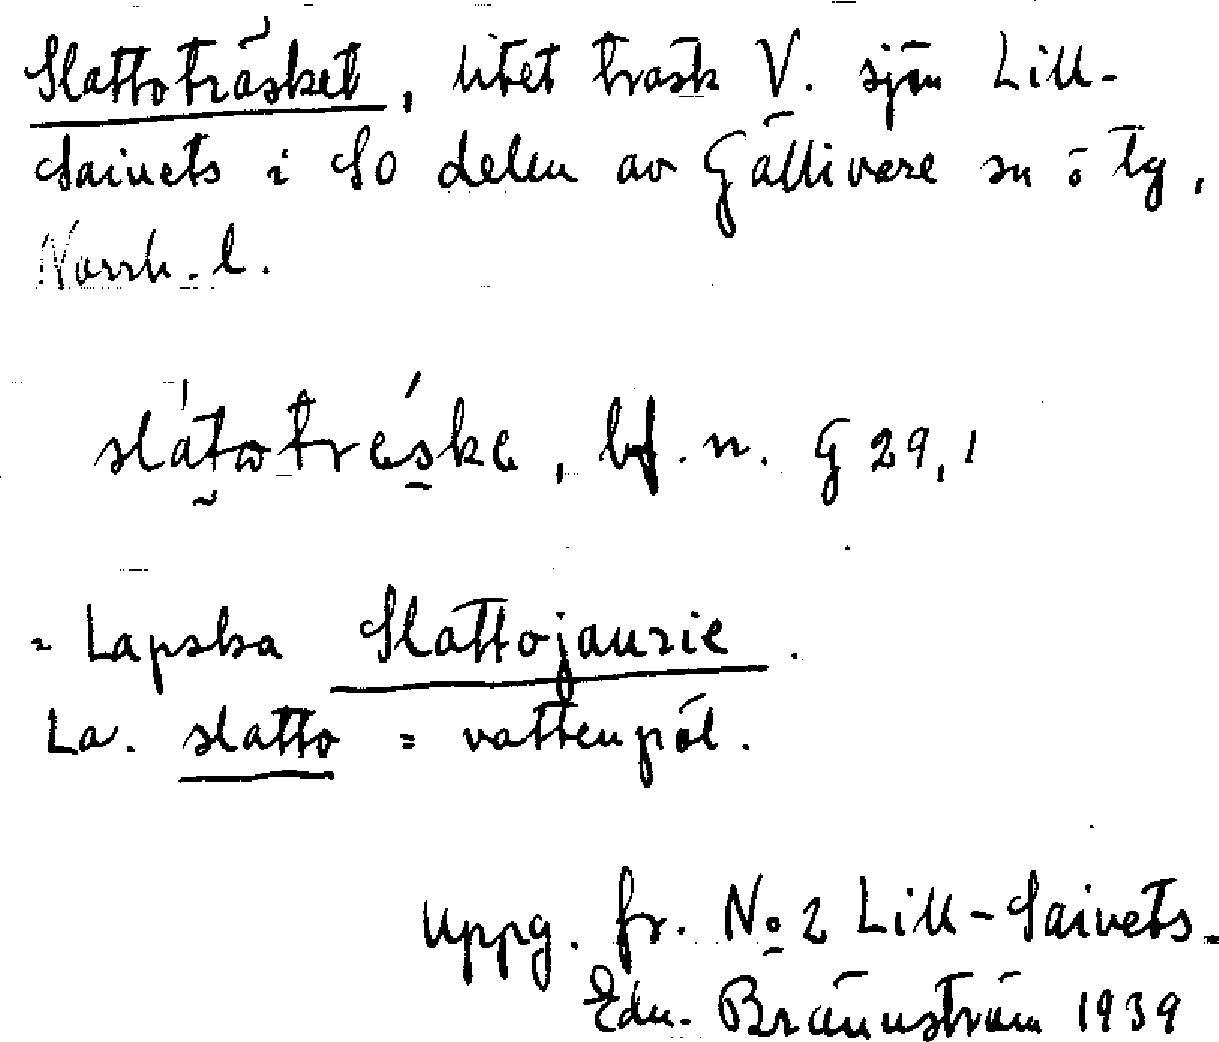 Slattoträsket, litet träsk V. sjön Lill-
Saivets i SO delen av Gällivare sn o tg,
Norrb. l.
slatωtreske, bf. n. G 29,1
= Lapska Slattojaurie.
La. slatto = vattenpöl.
Uppg. fr. No 2 Lill-Saivets.
Edv. Brännström 1939